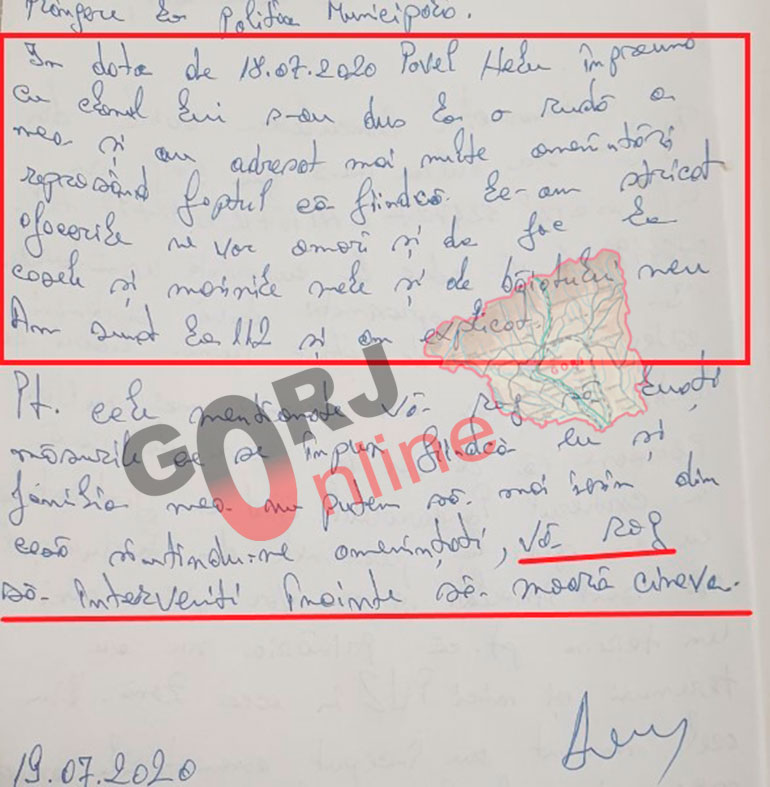 Plângere la Poliția Municipală.
În data de 18.07.2020 Pavel Helu împreună
cu clanul lui s-au dus la o rudă a
mea și au adresat mai multe amenințări
reproșând faptul că fiindcă le-am stricat
afacerile ne vor omorî și da foc la
casele și mașinile mele și de băiatului meu
Am sunat la 112 și am explicat.
Pt. cele menționate vă rog să luați
măsurile ce se impun fiindcă eu și
familia mea nu putem să mai ieșim din
casă simțindu-ne amenințați, vă rog
să interveniți înainte să moară cineva.
19.07.2020
GORJ
Online